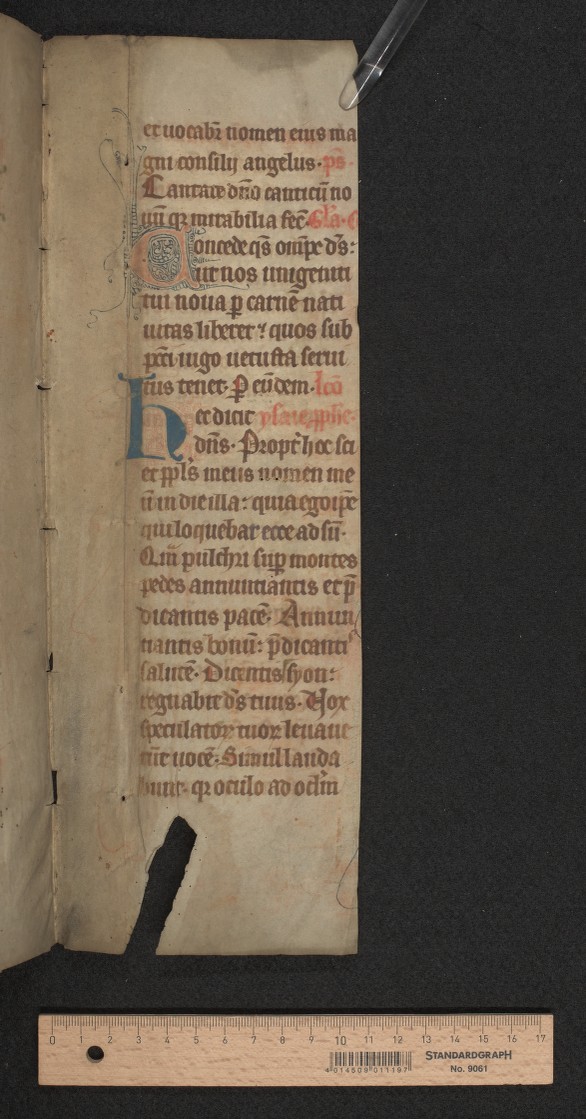 et uocabr̄ nomen eius ma
gni consilij angelus. ps̄.
Cantate dn̄o canticū no
uū qr̄ mirabilia fec̄. Gl̄a.
Concede qs̄ om̄pe ds̄:
ut nos unigeniti
tui noua p carnē nati
uitas liberet ⁊ quos sub
pcc̄i iugo uetusta serui
tus tenet. P eūdem. lcō
Hec dicit
dn̄s. Propt̄ hoc sci
et ppl̄s meus nomen me
ū in die illa: quia ego ip̄e
qui loquebar ecce ad sū.
Q̄m pulchri sup montes
pedes annuntiantis et p̄
dicantis pacē. Annun
tiantis bonū: p̄dicanti
salutē. Dicentis syon:
regnabit ds̄ tuus. Vox
speculatoꝝ tuoꝝ leuaue
rūt uocē: Simul lauda
bunt. qr̄ oculo ad oclm̄
0 1 2 3 4 5 6 7 8 9 10 11 12 13 14 15 16 17
STANDARDGRAPH
4 014509 011197
No. 9061